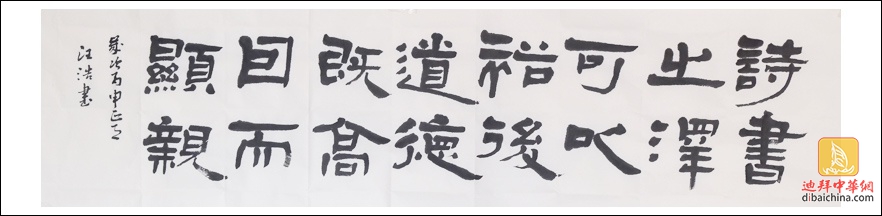 詩書
之澤
可以
裕後
道德
既高
因而
顯親
歲次丙申正月
汪浩書
迪拜中華網
dibaichina.com